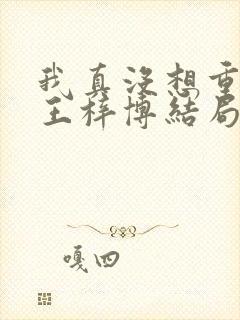 我真没想重
王梓博结局
嘎四